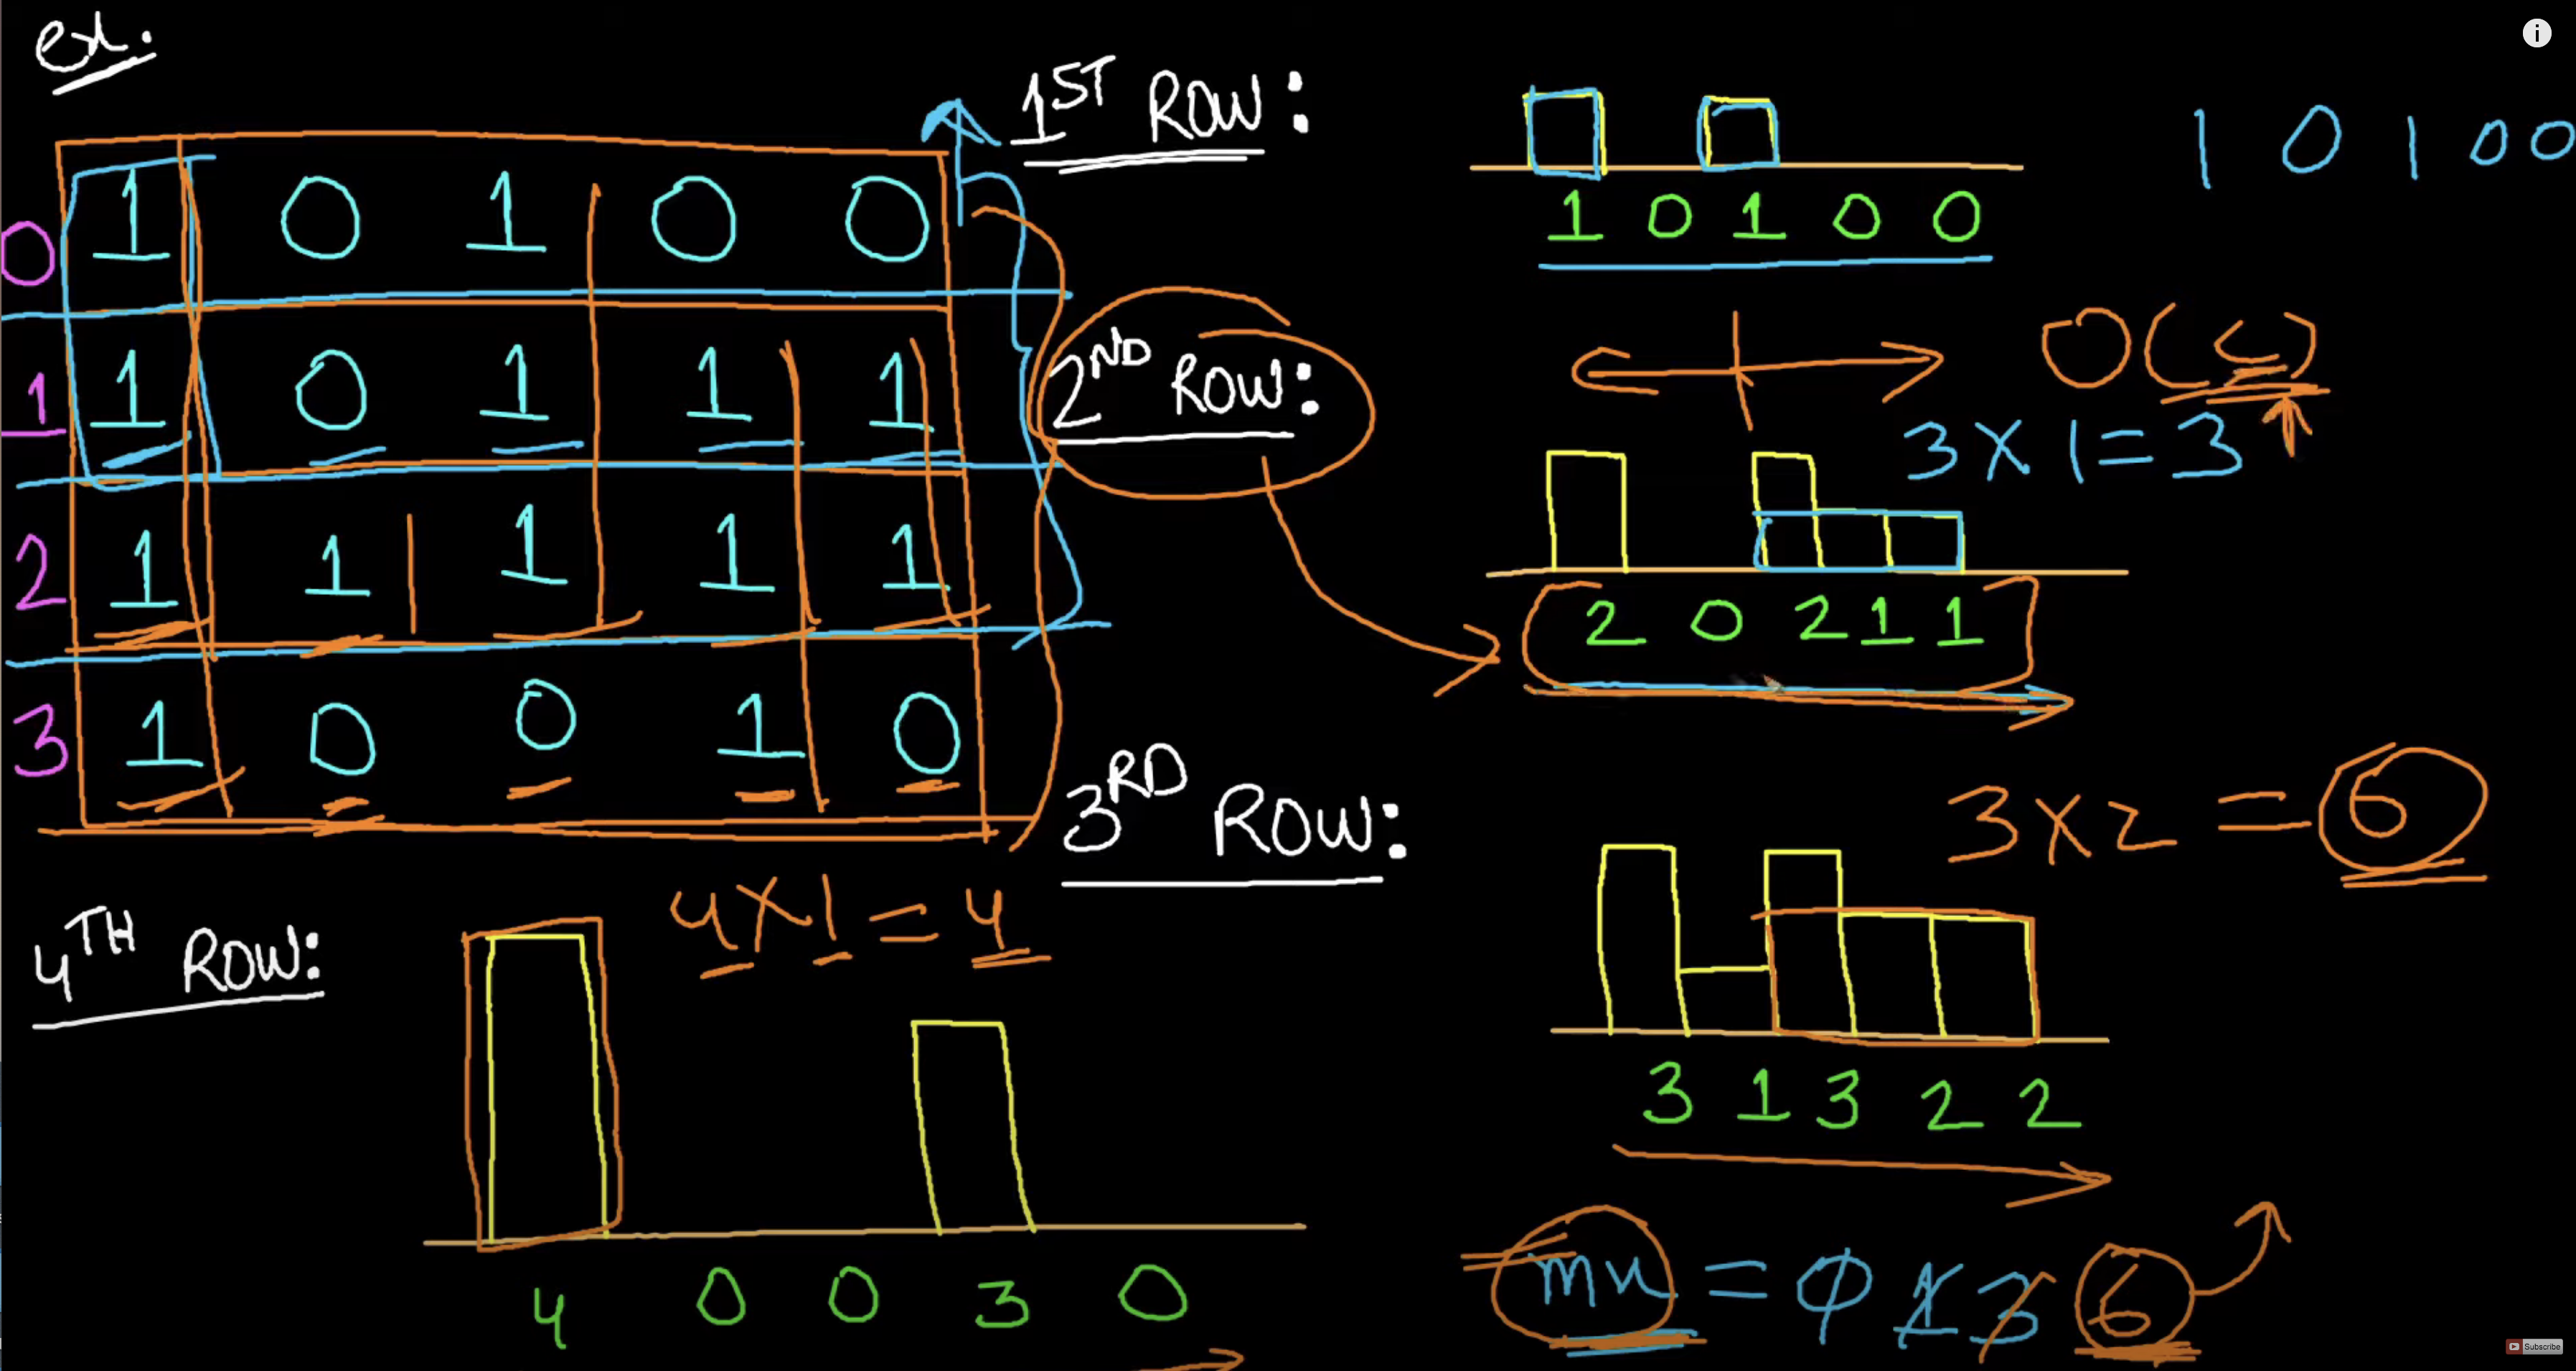 ex.
0 1 0 1 0 0
1 1 0 1 1 1
2 1 1 1 1 1
3 1 0 0 1 0
1ST ROW:
1 0 1 0 0
1 0 1 0 0
2ND ROW:
O(C)
3 X 1 = 3
2 0 2 1 1
3RD ROW:
3 X 2 = 6
3 1 3 2 2
4TH ROW:
4 X 1 = 4
4 0 0 3 0
mx = 0 1 3 6
Subscribe